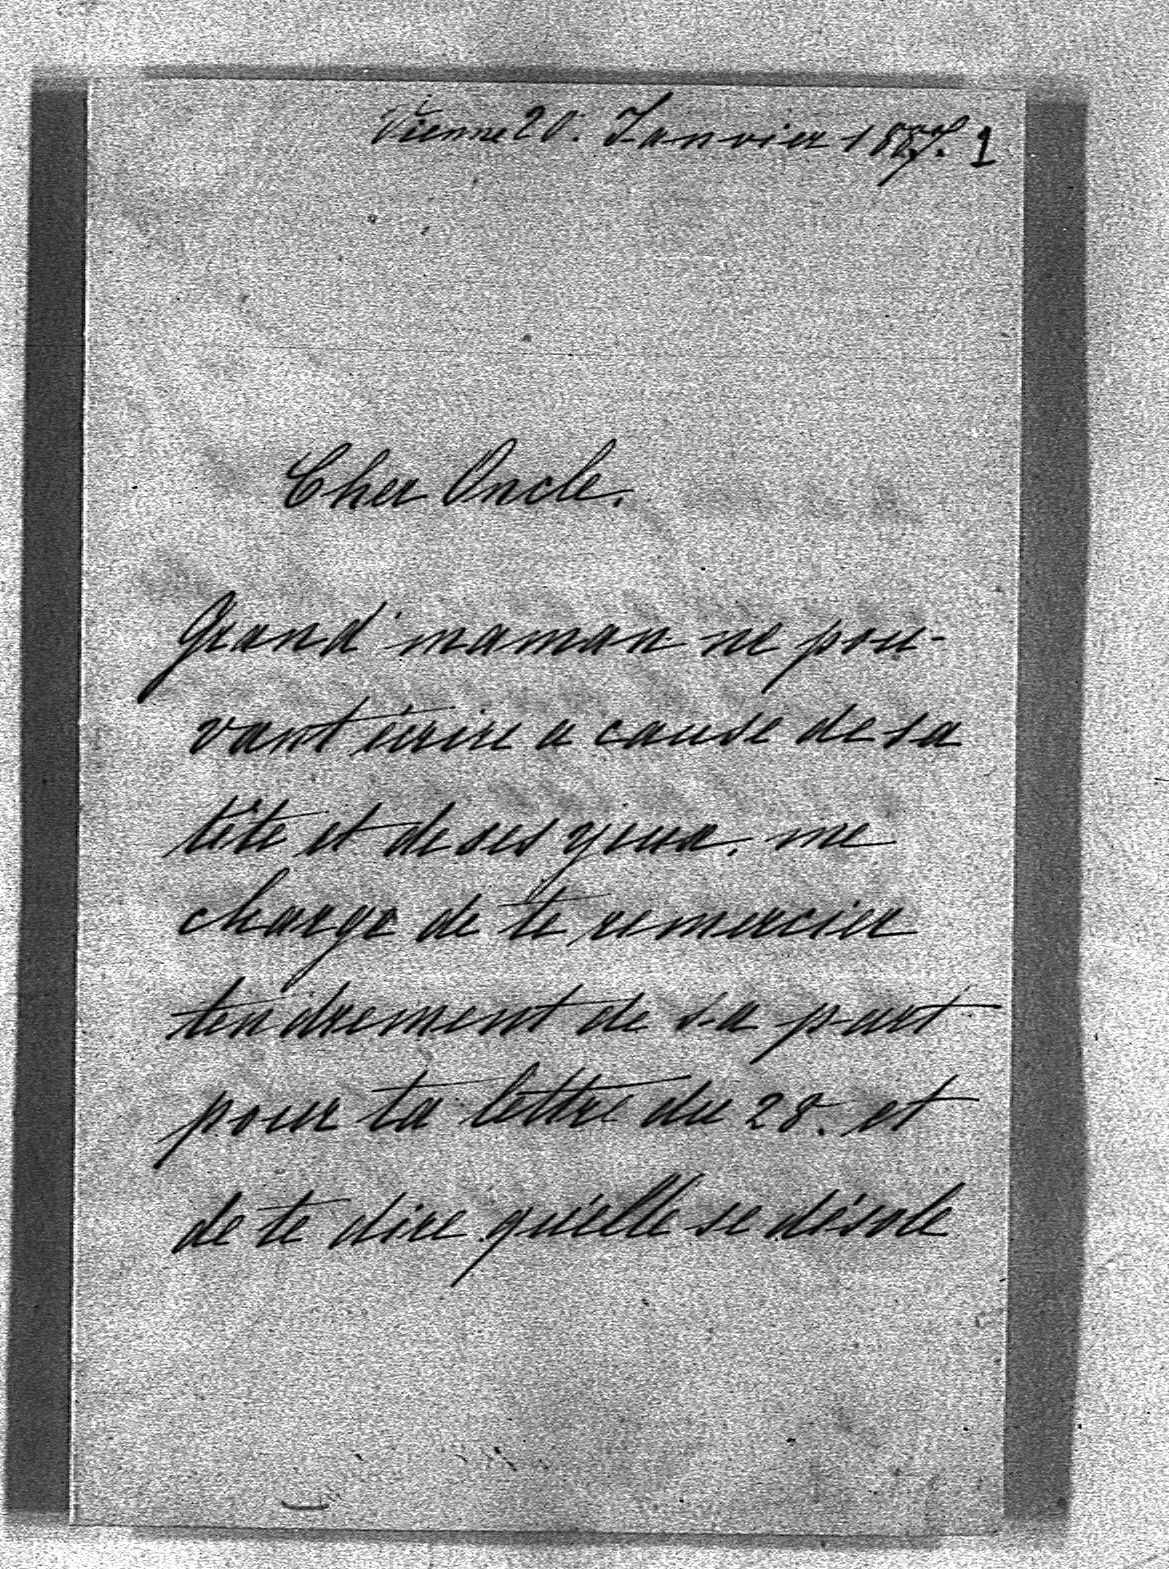 Vienne 20. Janvier 1887. 1
Cher Oncle.
Grand' maman ne pou-
vant écrire a cause de sa
tête et de ses yeux. me
charge de te remercier
tendrement de sa part
pour ta lettre du 28. et
de te dire qu'elle se désole